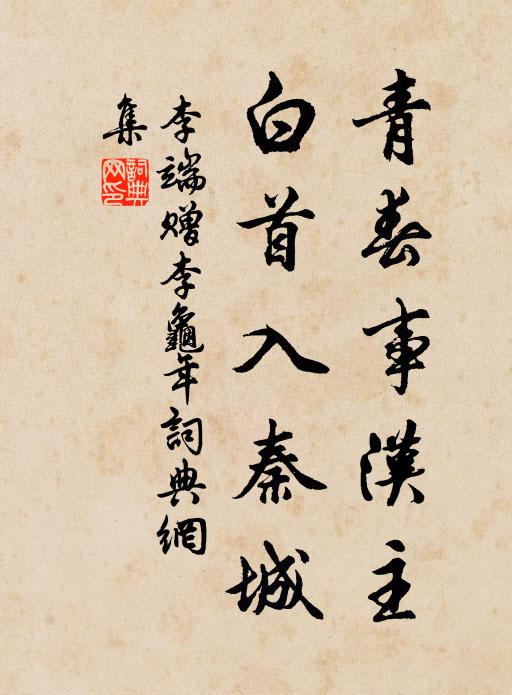 青春事漢主
白首入秦城
李端贈李龜年詞典網
集
詞典
网印